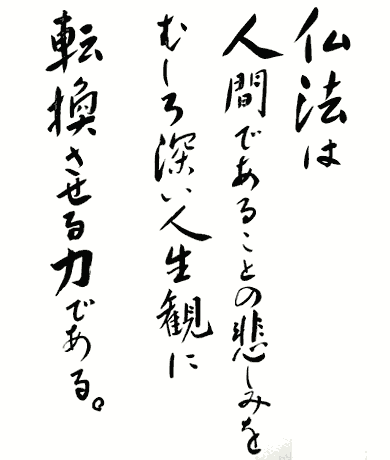 仏法は
人間であることの悲しみを
むしろ深い人生観に
転換させる力である。